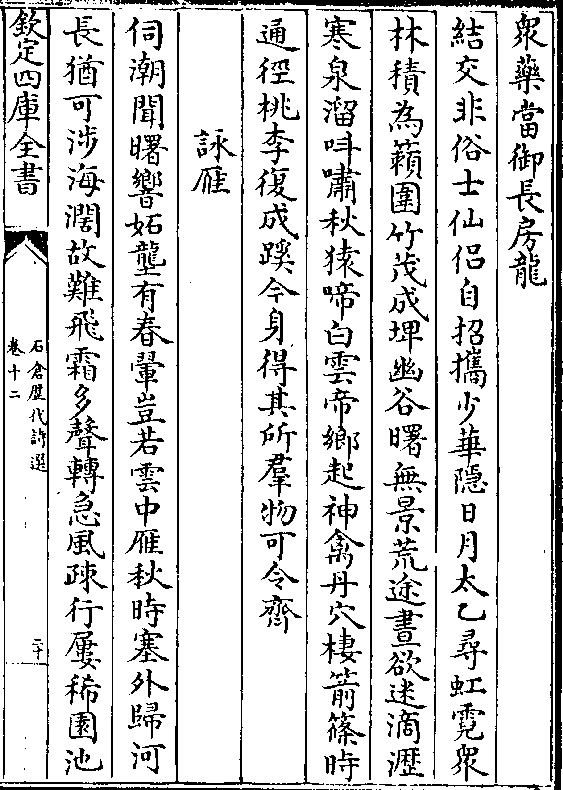 衆藥當御長房龍
結交非俗士仙侣自招擕少華隠日月太乙尋虹霓衆
林積為籟圍竹茂成埤幽谷曙無景荒途晝欲迷滴瀝
寒泉溜呌嘯秋猿啼白雲帝鄉起神禽丹穴棲箭篠時
通徑桃李復成蹊今身得其所羣物可令齊
詠雁
伺潮聞曙響妬壟有春翬豈若雲中雁秋時塞外歸河
長猶可涉海濶故難飛霜多聲轉急風疎行屢稀園池
欽定四庫全書
石倉歴代詩選
卷十二
二十